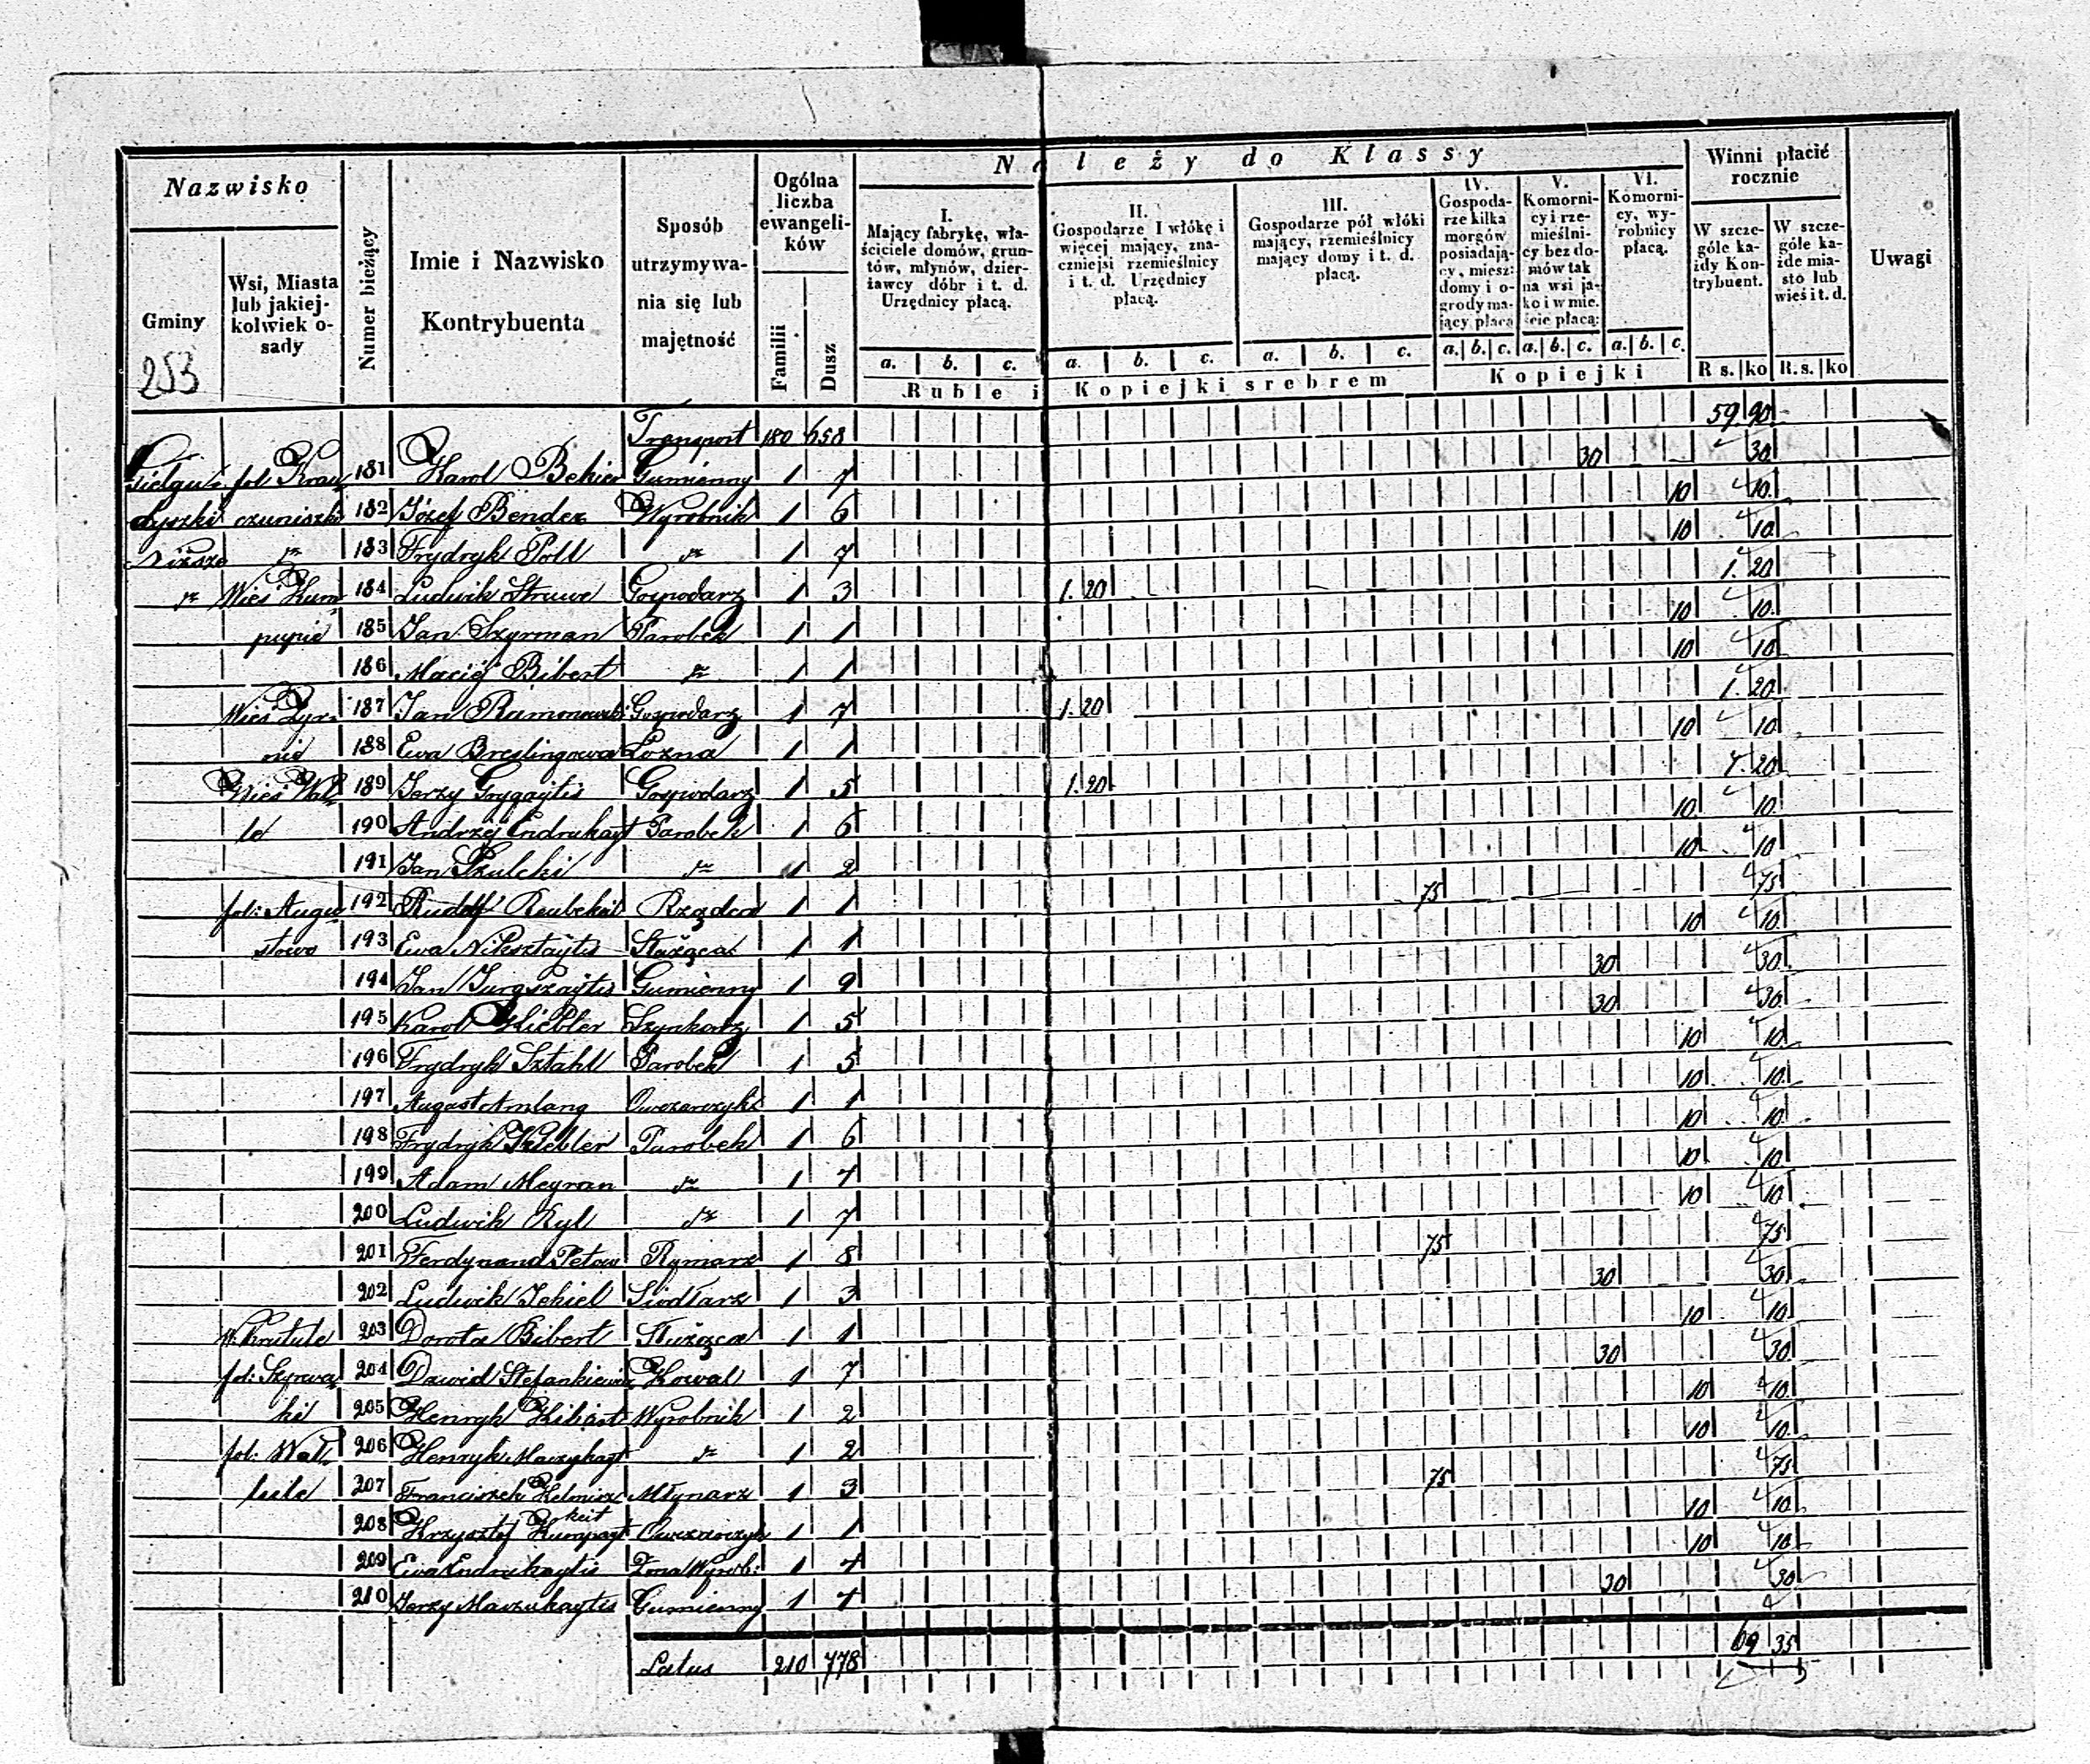 Należy do Klassy
Nazwisko
Gminy
253
Wsi, Miasta lub jakiej-kolwiek o-sady
Numer bieżący
Imie i Nazwisko Kontrybuenta
Sposób utrzymywa-nia się lub majętność
Ogólna liczba ewangeli-ków
Familii
Dusz
I. Mający fabrykę, wła-ściciele domów, grun-tów, młynów, dzier-żawcy dóbr i t. d. Urzędnicy płacą.
II. Gospodarze I włókę i więcej mający, zna-czniejsi rzemieślnicy i t. d. Urzędnicy płacą.
III. Gospodarze pół włóki mający, rzemieślnicy mający domy i t. d. płacą.
IV. Gospoda-rze kilka morgów posiadają-cy, miesz: domy i o-grody ma-jący płacą
V. Komorni-cy i rze-mieślni-cy bez do-mów tak na wsi ja-ko i w mie-ście płacą:
VI. Komorni-cy, wy-robnicy płacą.
Winni płacić rocznie
W szcze-góle ka-żdy Kon-trybuent.
W szcze-góle ka-żde mia-sto lub wieś i t. d.
Uwagi
a. b. c. a. b. c. a. b. c. a. b. c. a. b. c. a. b. c.
Ruble i Kopiejki srebrem Kopiejki R s. ko R. s. ko
Transport 180 658 59 90
fol 181 Karol Bekier Gumienny 1 7 30 30
182 Józef Bender Wyrobnik 1 6 10 10
183 Frydryk Poll dto 1 7 10 10
dto Wieś 184 Ludwik Struwe Gospodarz 1 3 1.20 1.20
pupie 185 Jan Szyrman Parobek 1 1 10 10
186 Maciej Bibert dto 1 1 10 10
Wieś 187 Jan Ramonowski Gospodarz 1 7 1.20 1.20
188 Ewa Breslingowa Lozna 1 1 10 10
Wieś 189 Jerzy Grygajtis Gospodarz 1 5 1.20 1.20
190 Andrzej Endrukajt Parobek 1 6 10 10
191 Jan Szulcki dto 1 2 10 10
fol: Augu 192 Rudolf Rządca 1 1 75 75
stowo 193 Ewa Służąca 1 1 10 10
194 Jan Jurgszajtis Gumienny 1 9 30 30
195 Karol Kiebler Szynkarz 1 5 30 30
196 Frydryk Sztahl Parobek 1 5 10 10
197 August Amlang Owczarczyk 1 1 10 10
198 Frydryk Kiebler Parobek 1 6 10 10
199 Adam Meyran dto 1 4 10 10
200 Ludwik Ryl dto 1 7 10 10
201 Ferdynand Petow Rymarz 1 8 75 75
202 Ludwik Jekiel Siodlarz 1 3 30 30
W. Krutule 203 Dorota Bibert Służąca 1 1 10 10
fol: Szyrwa 204 Dawid Stefankiewicz Kowal 1 7 30 30
ki 205 Henryk Wyrobnik 1 2 10 10
fol: 206 Henryk dto 1 2 10 10
207 Franciszek Młynarz 1 3 75 75
208 Krzysztof Owczarczyk 1 1 10 10
209 Ewa Endrukaytis Żona Wyrob: 1 4 10 10
210 Jerzy Maczukaytis Gumienny 1 4 30 30
Latus 210 778 69 35